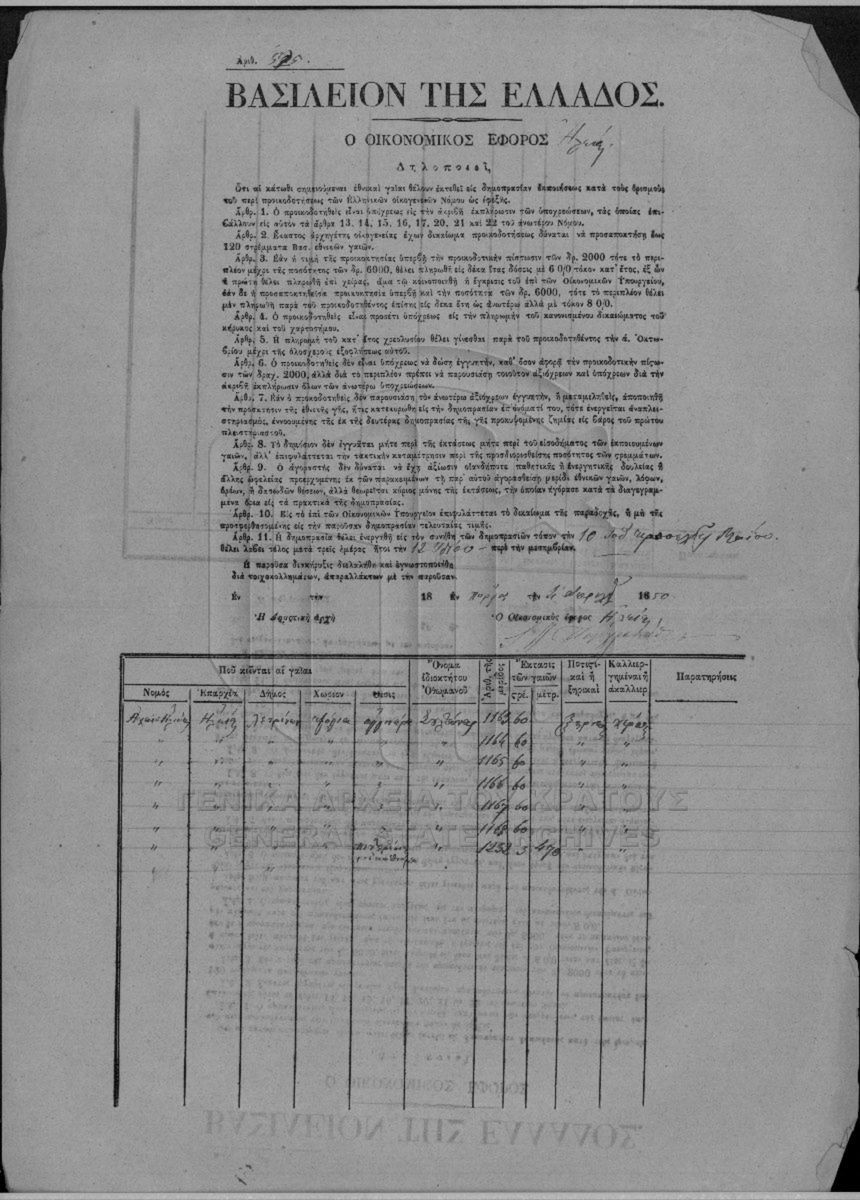 Αριθ.
ΒΑΣΙΛΕΙΟΝ ΤΗΣ ΕΛΛΑΔΟΣ.
Ο ΟΙΚΟΝΟΜΙΚΟΣ ΕΦΟΡΟΣ Ηλείας
Δηλοποιεῖ,
Ὅτι αἱ κάτωθι σημειούμεναι ἐθνικαὶ γαῖαι θέλουν ἐκτεθεῖ εἰς δημοπρασίαν ἐκποιήσεως κατὰ τοὺς ὁρισμοὺς
τοῦ περὶ προικοδοτήσεως τῶν Ἑλληνικῶν οἰκογενειῶν Νόμου ὡς ἐφεξῆς.
Ἀρθρ. 1. Ὁ προικοδοτηθεὶς εἶναι ὑπόχρεως εἰς τὴν ἀκριβῆ ἐκπλήρωσιν τῶν ὑποχρεώσεων, τὰς ὁποίας ἐπι-
βάλλουν εἰς αὐτὸν τὰ ἄρθρα 13, 14, 15, 16, 17, 20, 21 καὶ 22 τοῦ ἀνωτέρου Νόμου.
Ἀρθρ. 2. Ἕκαστος ἀρχηγέτης οἰκογενείας ἔχων δικαίωμα προικοδοτήσεως δύναται νὰ προσαποκτήσῃ ἕως
120 στρέμματα Βασ. ἐθνικῶν γαιῶν.
Ἀρθρ. 3. Ἐὰν ἡ τιμὴ τῆς προικοκτησίας ὑπερβῇ τὴν προικοδοτικὴν πίστωσιν τῶν δρ. 2000 τότε τὸ περι-
πλέον μέχρι τῆς ποσότητος τῶν δρ. 6000, θέλει πληρωθῆ εἰς δέκα ἔτας δόσεις μὲ 6 0/0 τόκον κατ' ἔτος, ἐξ ὧν
ἡ πρώτη θέλει πληρωθῆ ἐπὶ χεῖρας, ἅμα τῷ κοινοποιηθῇ ἡ ἔγκρισις τοῦ ἐπὶ τῶν Οἰκονομικῶν Ὑπουργείου,
ἐὰν δὲ ἡ προσαποκτηθεῖσα προικοκτησία ὑπερβῇ καὶ τὴν ποσότητα τῶν δρ. 6000, τότε τὸ περιπλέον θέλει
μὲν πληρωθῆ παρὰ τοῦ προικοδοτηθέντος ἐπίσης εἰς δέκα ἔτη ὡς ἀνωτέρω ἀλλὰ μὲ τόκον 8 0/0.
Ἀρθρ. 4. Ὁ προικοδοτηθεὶς εἶναι προσέτι ὑπόχρεως εἰς τὴν πληρωμὴν τοῦ κανονισμένου δικαιώματος τοῦ
κήρυκος καὶ τοῦ χαρτοσήμου.
Ἀρθρ. 5. Ἡ πληρωμὴ τοῦ κατ' ἔτος χρεολυσίου θέλει γίνεσθαι παρὰ τοῦ προικοδοτηθέντος τὴν ά. Ὀκτω-
βρίου μέχρι τῆς ὁλοσχεροῦς ἐξοφλήσεως αὐτοῦ.
Ἀρθρ. 6. Ὁ προικοδοτηθεὶς δὲν εἶναι ὑπόχρεως νὰ δώσῃ ἐγγυητὴν, καθ' ὅσον ἀφορᾷ τὴν προικοδοτικὴν πίστω-
σιν τῶν δραχ. 2000, ἀλλὰ διὰ τὸ περιπλέον πρέπει νὰ παρουσιάσῃ τοιοῦτον ἀξιόχρεων καὶ ὑπόχρεων διὰ τὴν
ἀκριβῆ ἐκπλήρωσιν ὅλων τῶν ἀνωτέρω ὑποχρεώσεων.
Ἀρθρ. 7. Ἐὰν ὁ προικοδοτηθεὶς δὲν παρουσιάσῃ τὸν ἀνωτέρω ἀξιόχρεων ἐγγυητὴν, ἢ μεταμεληθεὶς, ἀποποιηθῇ
τὴν πρόσκτησιν τῆς ἐθνικῆς γῆς, ἥτις κατεκυρώθη εἰς τὴν δημοπρασίαν ἐπ' ὀνόματί του, τότε ἐνεργεῖται ἀναπλει-
στηριασμὸς, ἐννοουμένης τῆς ἐκ τῆς δευτέρας δημοπρασίας τῆς γῆς προκυψομένης ζημίας εἰς βάρος τοῦ πρώτου
πλειστηριαστοῦ.
Ἀρθρ. 8. Τὸ δημόσιον δὲν ἐγγυᾶται μήτε περὶ τῆς ἐκτάσεως μήτε περὶ τοῦ εἰσοδήματος τῶν ἐκποιουμένων
γαιῶν, ἀλλ' ἐπιφυλάττεται τὴν τακτικὴν καταμέτρησιν περὶ τῆς προσδιορισθείσης ποσότητος τῶν στρεμμάτων.
Ἀρθρ. 9. Ὁ ἀγοραστὴς δὲν δύναται νὰ ἔχῃ ἀξίωσιν οἱανδήποτε παθητικῆς ἢ ἐνεργητικῆς δουλείας ἢ
ἄλλης ὠφελείας προερχομένης ἐκ τῶν παρακειμένων τῇ παρ' αὐτοῦ ἀγορασθείσῃ μερίδι ἐθνικῶν γαιῶν, λόφων,
ὀρέων, ἢ δασωδῶν θέσεων, ἀλλὰ θεωρεῖται κύριος μόνης τῆς ἐκτάσεως, τὴν ὁποίαν ἠγόρασε κατὰ τὰ διαγεγραμ-
μένα ὅρια εἰς τὰ πρακτικὰ τῆς δημοπρασίας.
Ἀρθρ. 10. Εἰς τὸ ἐπὶ τῶν Οἰκονομικῶν Ὑπουργεῖον ἐπιφυλάττεται τὸ δικαίωμα τῆς παραδοχῆς, ἢ μὴ τῆς
προσφερθησομένης εἰς τὴν παροῦσαν δημοπρασίαν τελευταίας τιμῆς.
Ἀρθρ. 11. Ἡ δημοπρασία θέλει ἐνεργηθῆ εἰς τὸν συνήθη τῶν δημοπρασιῶν τόπον τὴν 10
θέλει λάβει τέλος μετὰ τρεῖς ἡμέρας ἤτοι τὴν 12 περὶ τὴν μεσημβρίαν.
Ἡ παροῦσα διακήρυξις διελαλήθη καὶ ἐγνωστοποιήθη
διὰ τοιχοκολλημάτων, ἀπαραλλάκτων μὲ τὴν παροῦσαν.
Ἐν τὴν 18 Ἐν Πύργῳ τὴν 1850
Ἡ Δημοτικὴ ἀρχὴ Ὁ Οἰκονομικὸς ἔφορος Ηλείας
Ποῦ κεῖνται αἱ γαῖαι Ὄνομα ἰδιοκτήτου Ὀθωμανοῦ Ἀριθ. τῆς μερίδος Ἔκτασις τῶν γαιῶν Ποτιστικαὶ ἢ ξηρικαὶ Καλλιεργημέναι ἢ ἀκαλλιερ Παρατηρήσεις
Νομὸς Ἐπαρχία Δῆμος Χωρίον Θέσις στρέ. μετρ.
Αχαΐας Ηλιδος Ηλείας Λετρίνων 1163 60
" " " " " " 1164 60 " "
" " " " " " 1165 60 " "
" " " " " " 1166 60 " "
" " " " " " 1167 60 " "
" " " " " " 1168 60 " "
" " " " " 1232 3 470 " "